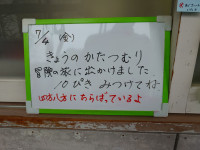 7/4 (金)
きょうのかたつむり
冒険の旅に出かけました
10ぴき みつけてね
四方八方にちらばっているよ